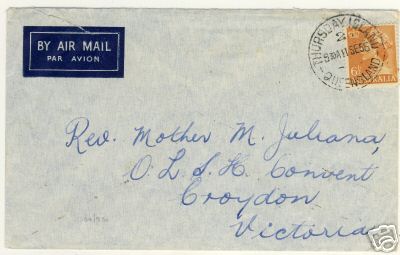 BY AIR MAIL
PAR AVION
THURSDAY ISLAND
2
QUEENSLAND
Rev. Mother M. Juliana,
O.L.S.H. Convent
Croydon
Victoria.